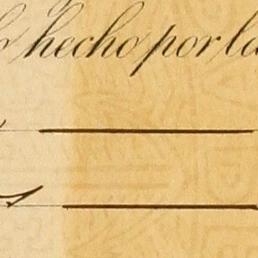 hecho por la